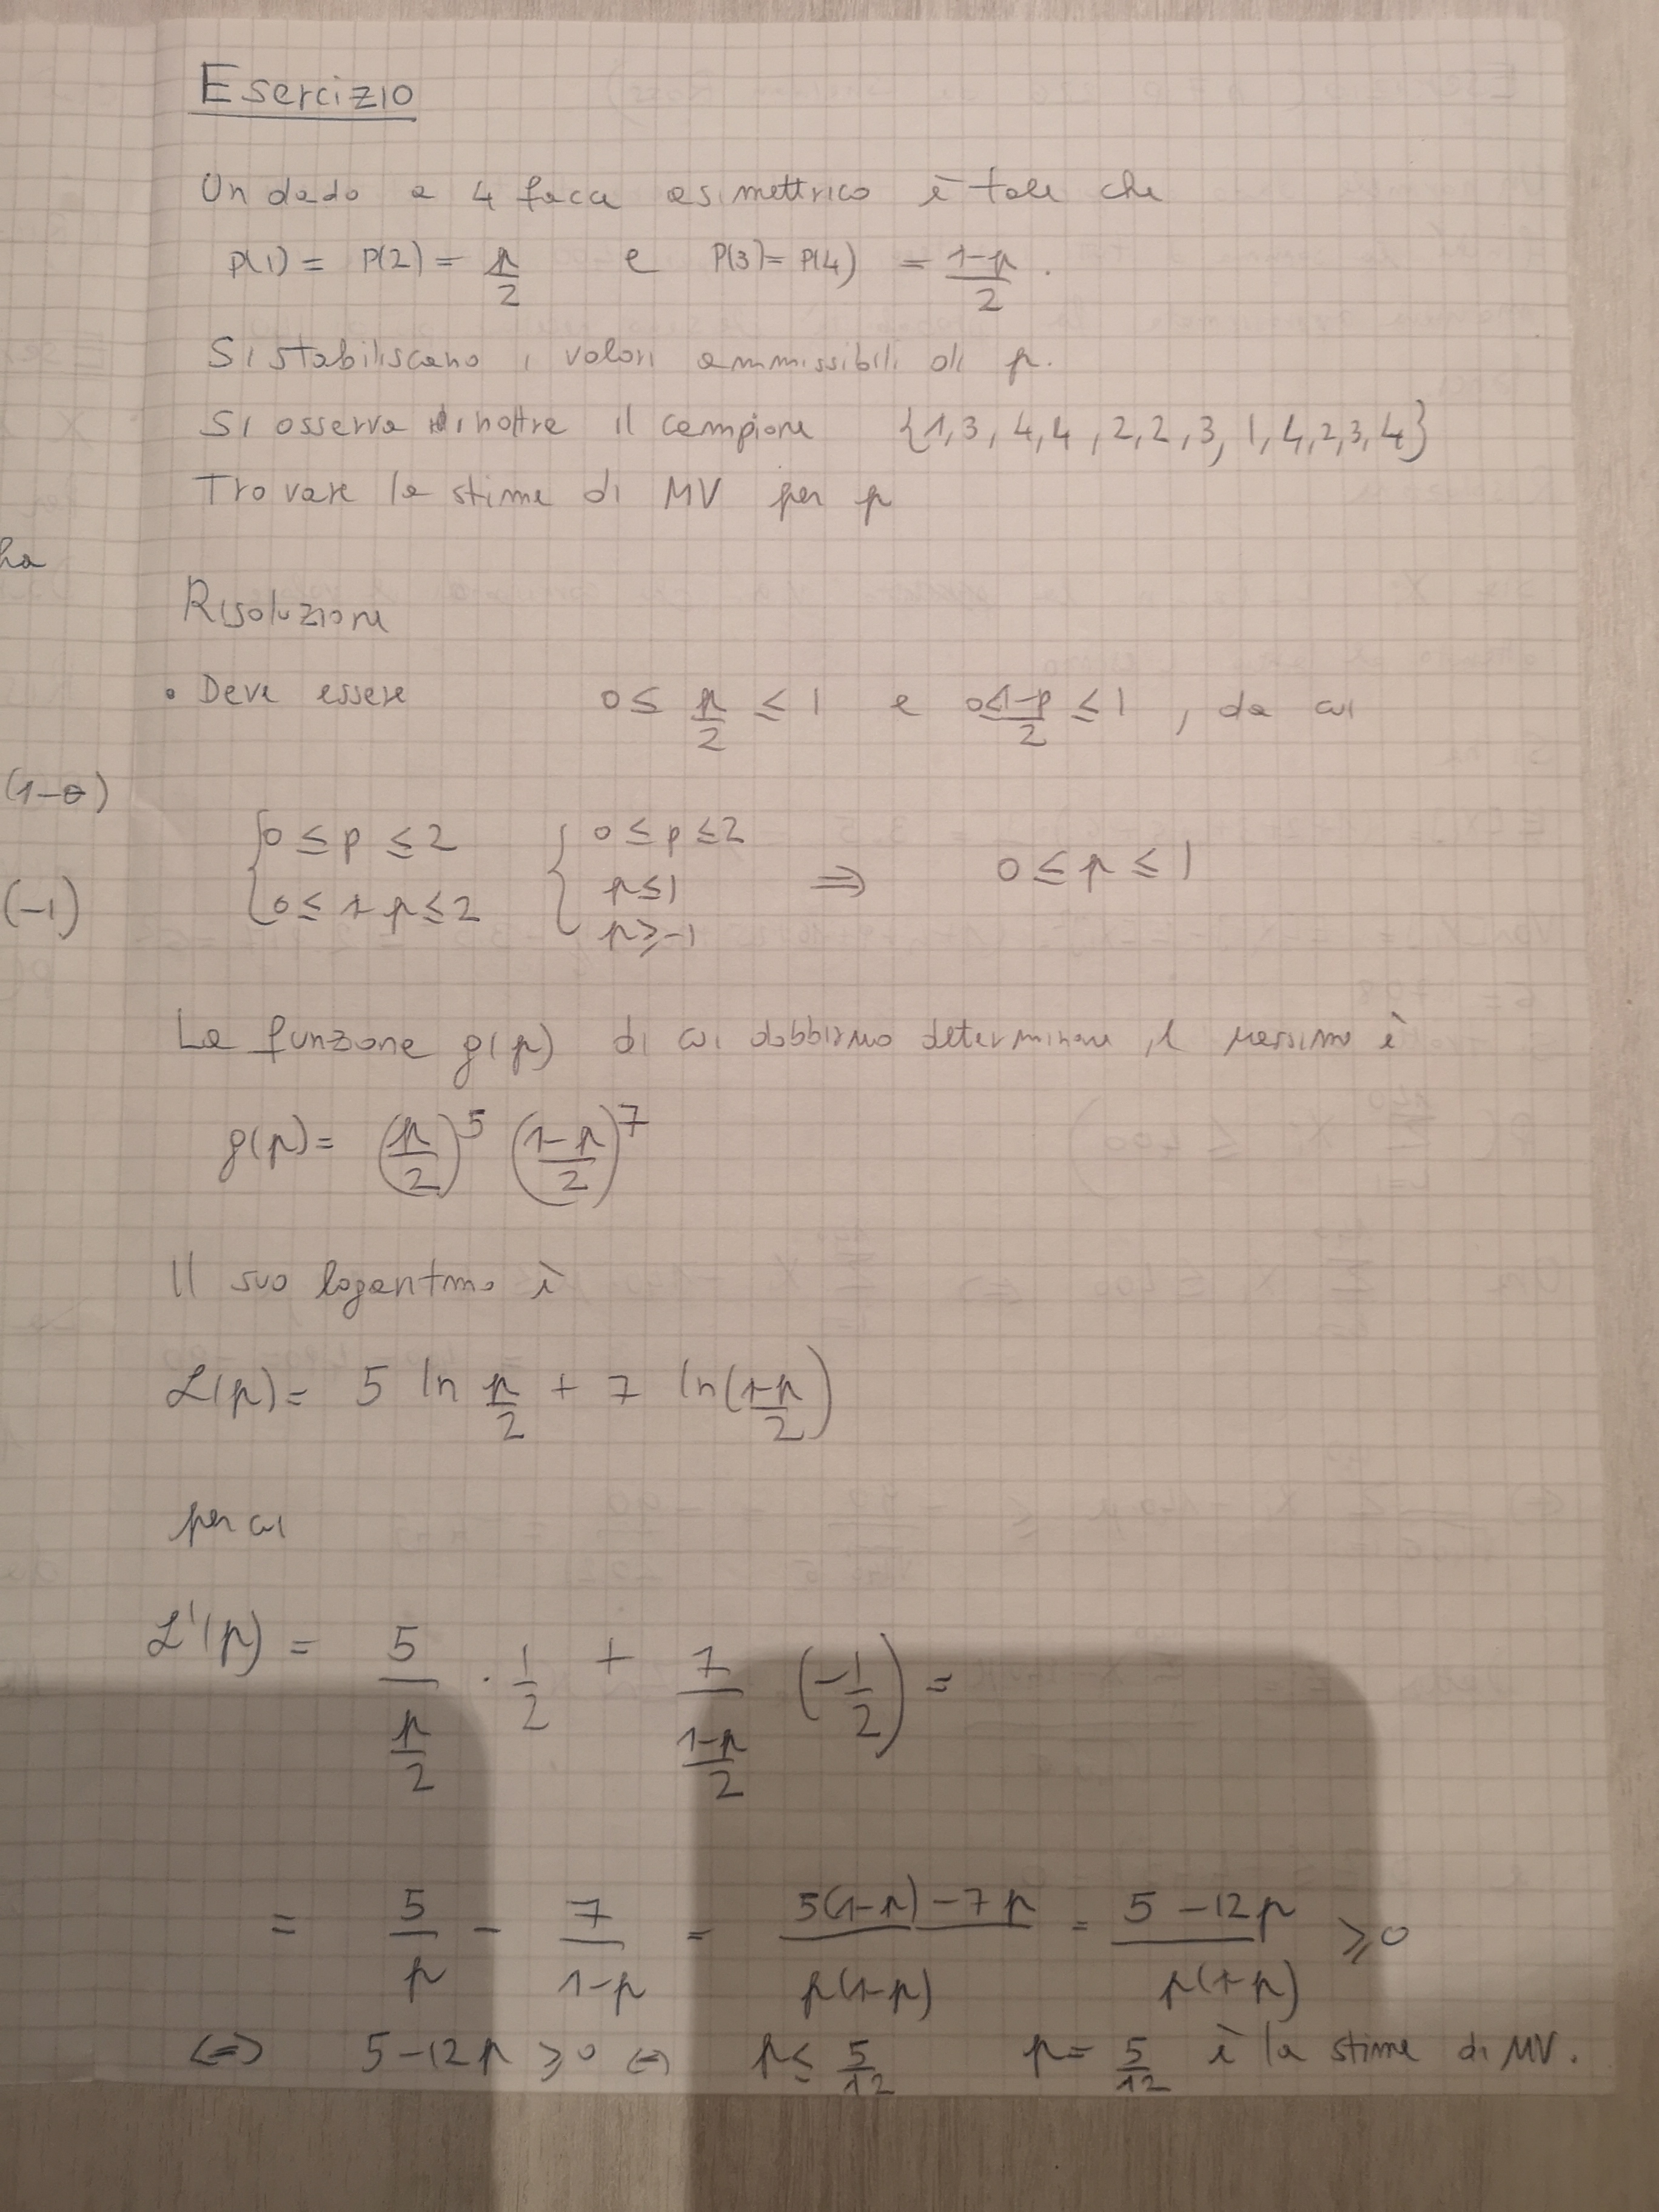 Esercizio
Un dado a 4 facce asimmetrico è tale che
P(1) = P(2) = p/2 e P(3) = P(4) = (1-p)/2 .
Si stabiliscano i valori ammissibili di p.
Si osserva inoltre il campione {1,3,4,4,2,2,3,1,4,2,3,4}
Trovare la stima di MV per p
ha
Risoluzione
• Deve essere 0 ≤ p/2 ≤ 1 e 0 ≤ (1-p)/2 ≤ 1 , da cui
(1-θ)
{ 0 ≤ p ≤ 2 { 0 ≤ p ≤ 2
0 ≤ 1-p ≤ 2 p ≤ 1 ⇒ 0 ≤ p ≤ 1
(-1)
p ≥ -1
La funzione g(p) di cui dobbiamo determinare il massimo è
g(p) = (p/2)^5 ((1-p)/2)^7
Il suo logaritmo è
L(p) = 5 ln p/2 + 7 ln((1-p)/2)
per cui
L'(p) = 5/(p/2) · 1/2 + 7/((1-p)/2) (-1/2) =
= 5/p - 7/(1-p) = (5(1-p) - 7p)/(p(1-p)) = (5-12p)/(p(1-p)) ≥ 0
⇔ 5-12p ≥ 0 ⇔ p ≤ 5/12 p = 5/12 è la stima di MV.